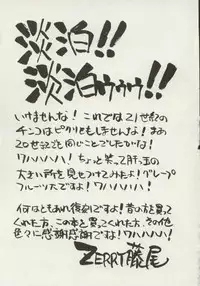 淡泊!!
淡泊ゥゥゥ!!
いけませんな! これでは21世紀の
チンコはピクリともしませんな! まあ
20世紀と同じことでしたがね!
ワハハハハ! ちょっと笑って肝っ玉の
大きい所を見せつけてみたよ! グレープ
フルーツ大ですよ! ワハハハハ!
何はともあれ復刻ですよ! 昔の方を買って
くれた方、この本を買ってくれた方、その他
色々に感謝感謝ですな! ワハハハハ!
ZERRY藤尾